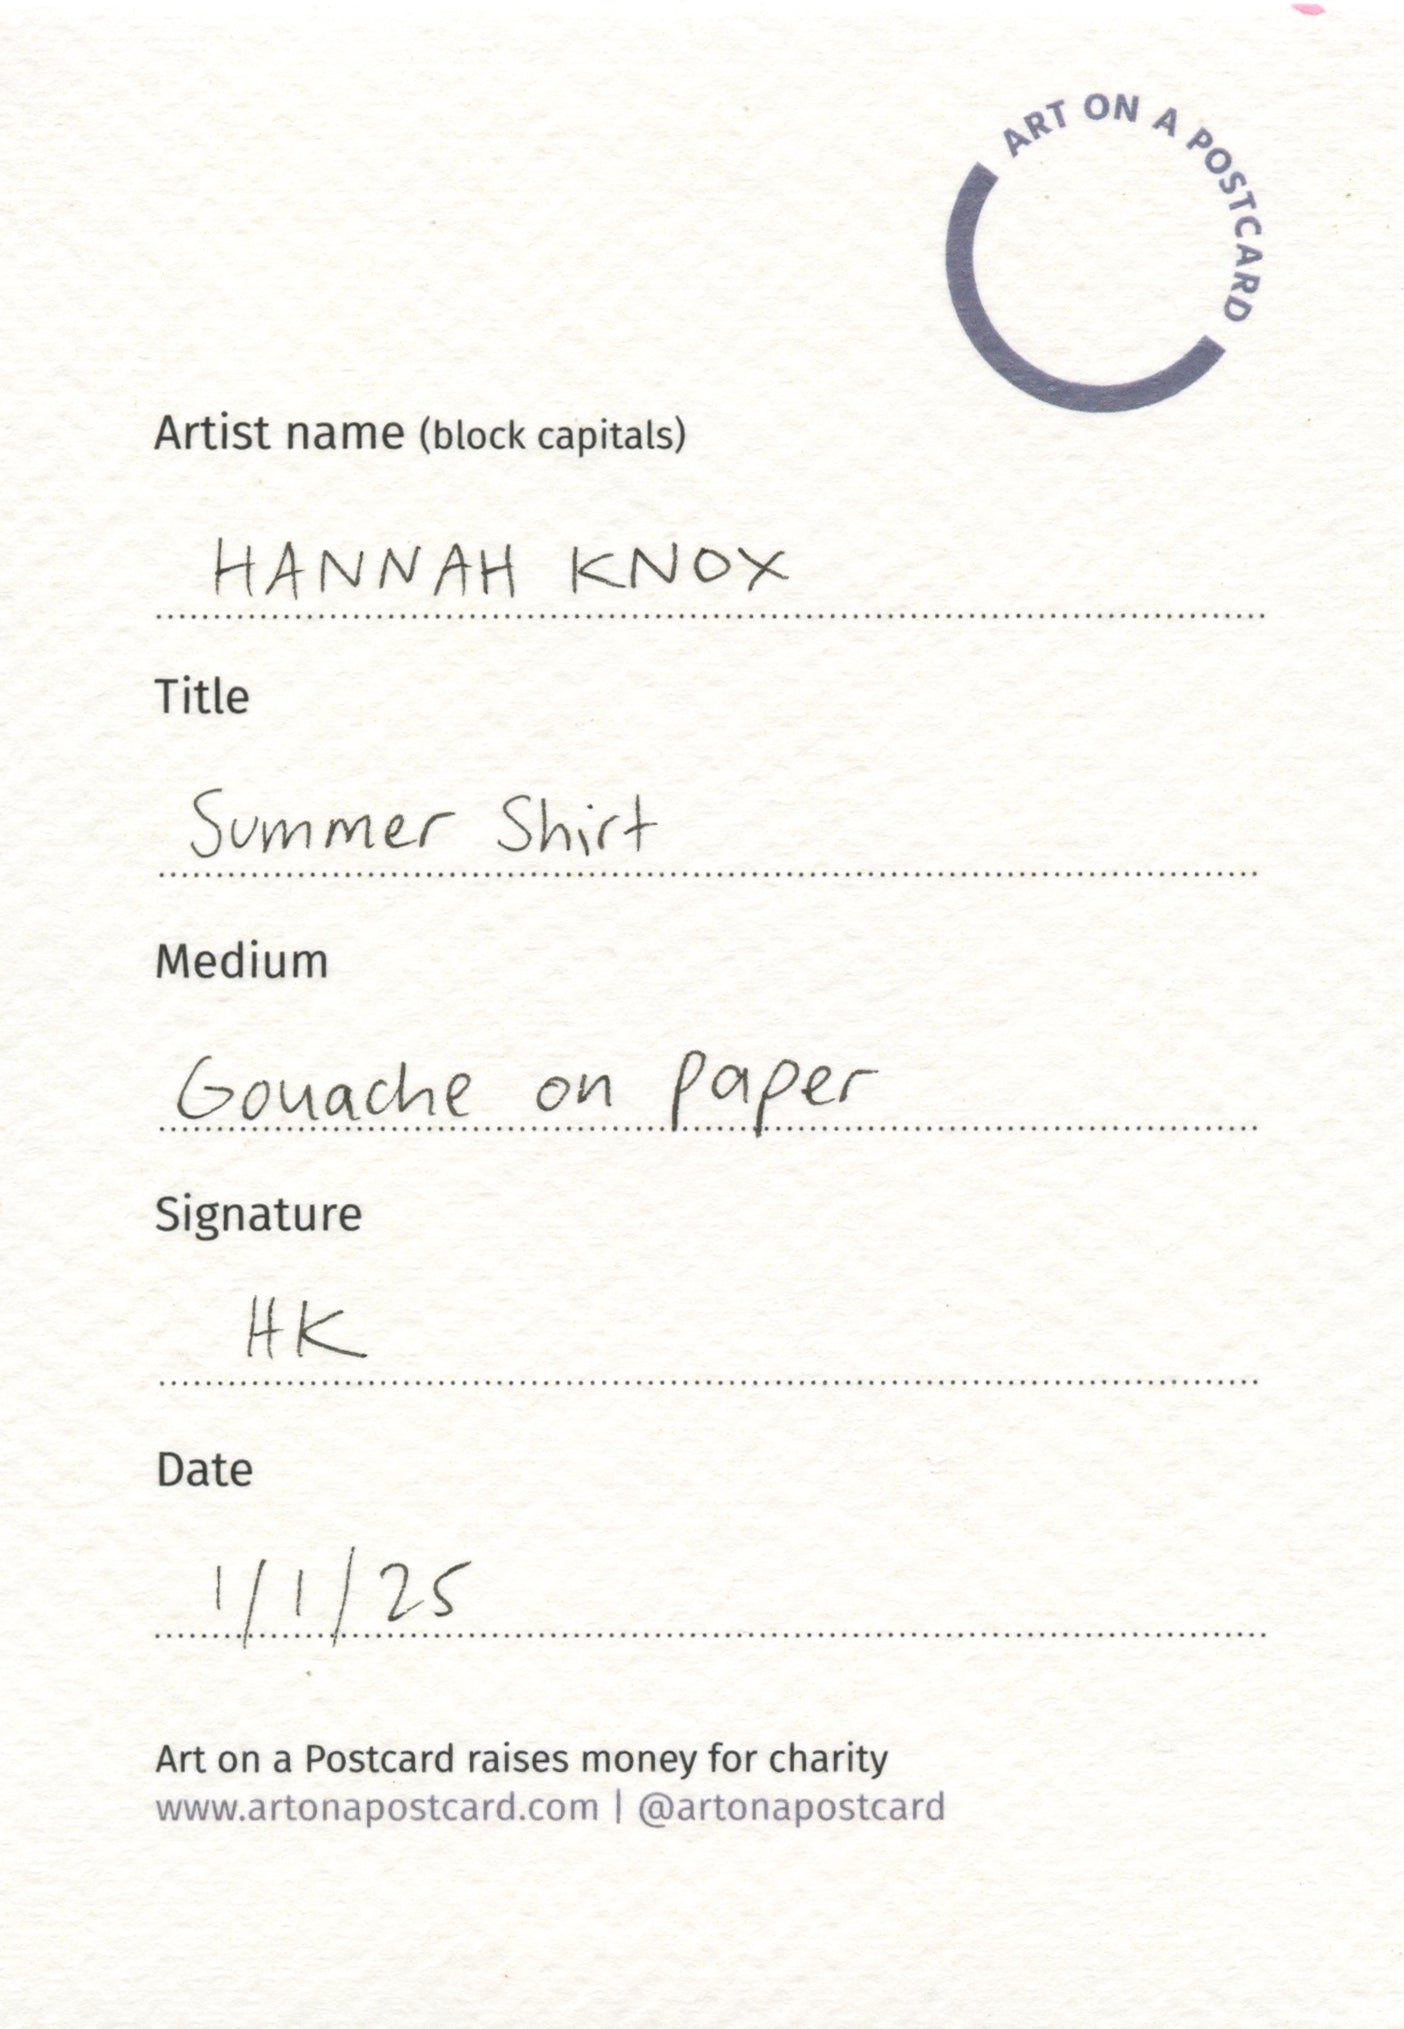 ART ON A POSTCARD
Artist name (block capitals)
HANNAH KNOX
Title
Summer Shirt
Medium
Gouache on paper
Signature
HK
Date
1/1/25
Art on a Postcard raises money for charity
www.artonapostcard.com | @artonapostcard